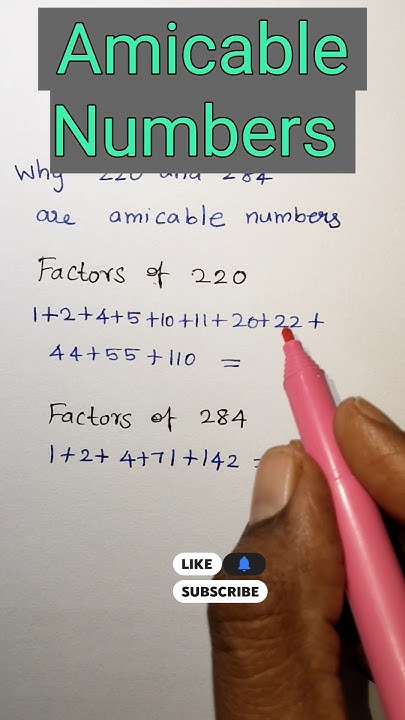 Amicable
Numbers
Why 220 and 284
are amicable numbers
Factors of 220
1+2+4+5+10+11+20+22+
44+55+110 =
Factors of 284
1+2+4+71+142 =
LIKE
SUBSCRIBE